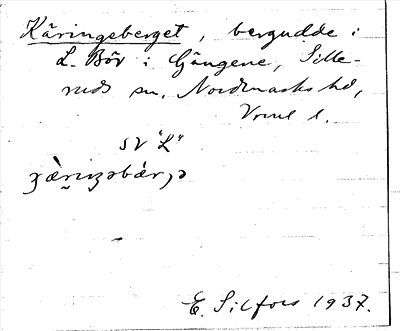 Käringsberget, bergudde i
L. Bör i Gängene, Sille-
ruds sn. Nordmarks hd,
Vrml l.
SV "L"
E. Silfors 1937.